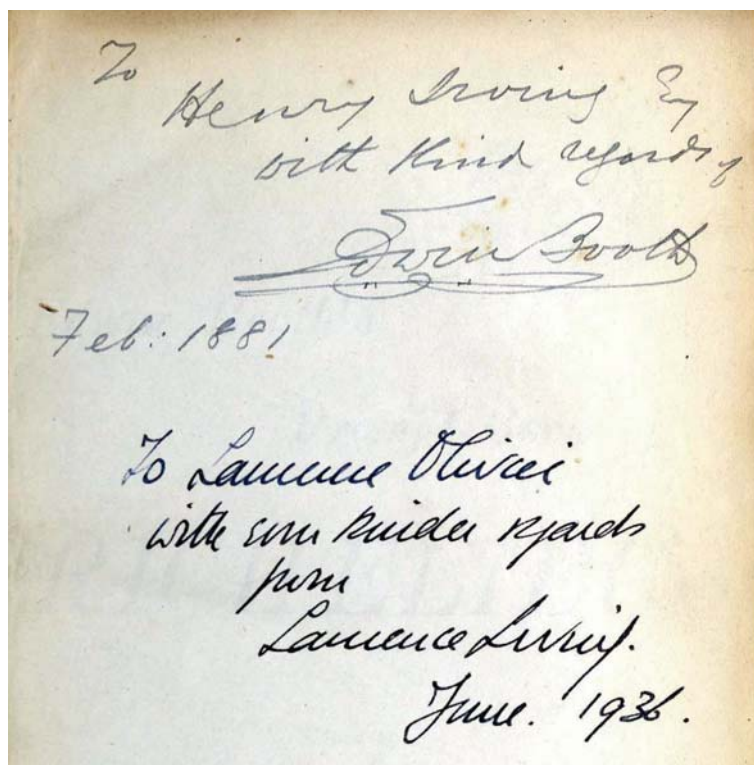 To
Henry Irving Esq
with kind regards of
Edwin Booth
Feb: 1881
To Laurence Olivier
with even kinder regards
from
Laurence Irving.
June. 1936.